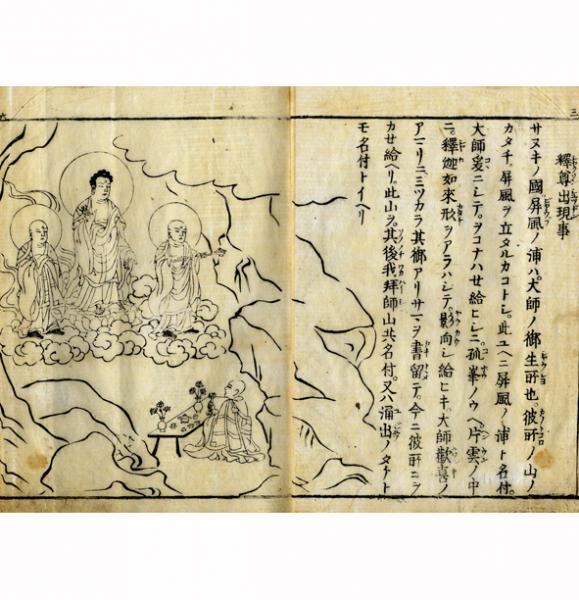 三
釋尊出現事
サヌキノ國屏風ノ浦ハ。大師ノ御生所也。彼所ノ山ノ
カタチ。屏風ヲ立タルカコトシ。此ユヘニ屏風ノ浦ト名付。
大師爰ニシテ。ヲコナハせ給ヒシニ。孤峯ノウヘ片雲ノ中
ニ。釋迦如來形ヲアラハシテ。影向シ給ヒキ。大師歡喜ノ
アマリニ。ミツカラ其御アリサマヲ書留テ。今ニ彼所ニヲ
カせ給ヘリ。此山ヲ。其後我拜師山共名付。又ハ涌出ノタケト
モ名付トイヘリ